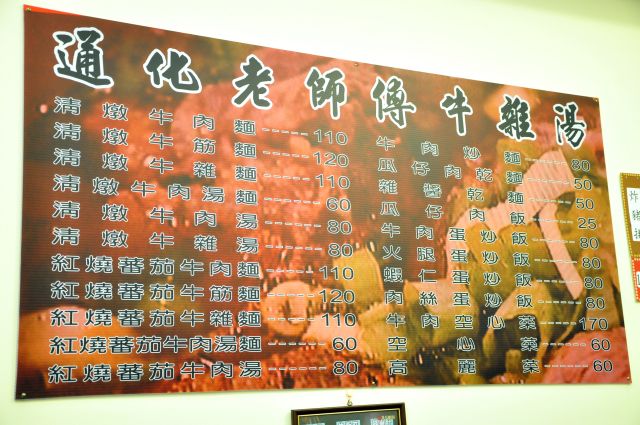 通化老師傅牛雜湯
清燉牛肉麵-----110
清燉牛筋麵-----120
清燉牛雜麵-----110
清燉牛肉湯麵-----60
清燉牛肉湯-----80
清燉牛雜湯-----80
紅燒蕃茄牛肉麵-----110
紅燒蕃茄牛筋麵-----120
紅燒蕃茄牛雜麵-----110
紅燒蕃茄牛肉湯麵-----60
紅燒蕃茄牛肉湯-----80
牛肉炒麵-----80
瓜仔肉乾麵-----50
雜醬乾麵-----50
瓜仔肉飯-----25
牛肉蛋炒飯-----80
火腿蛋炒飯-----80
蝦仁蛋炒飯-----80
肉絲蛋炒飯-----80
牛肉空心菜-----170
空心菜-----60
高麗菜-----60